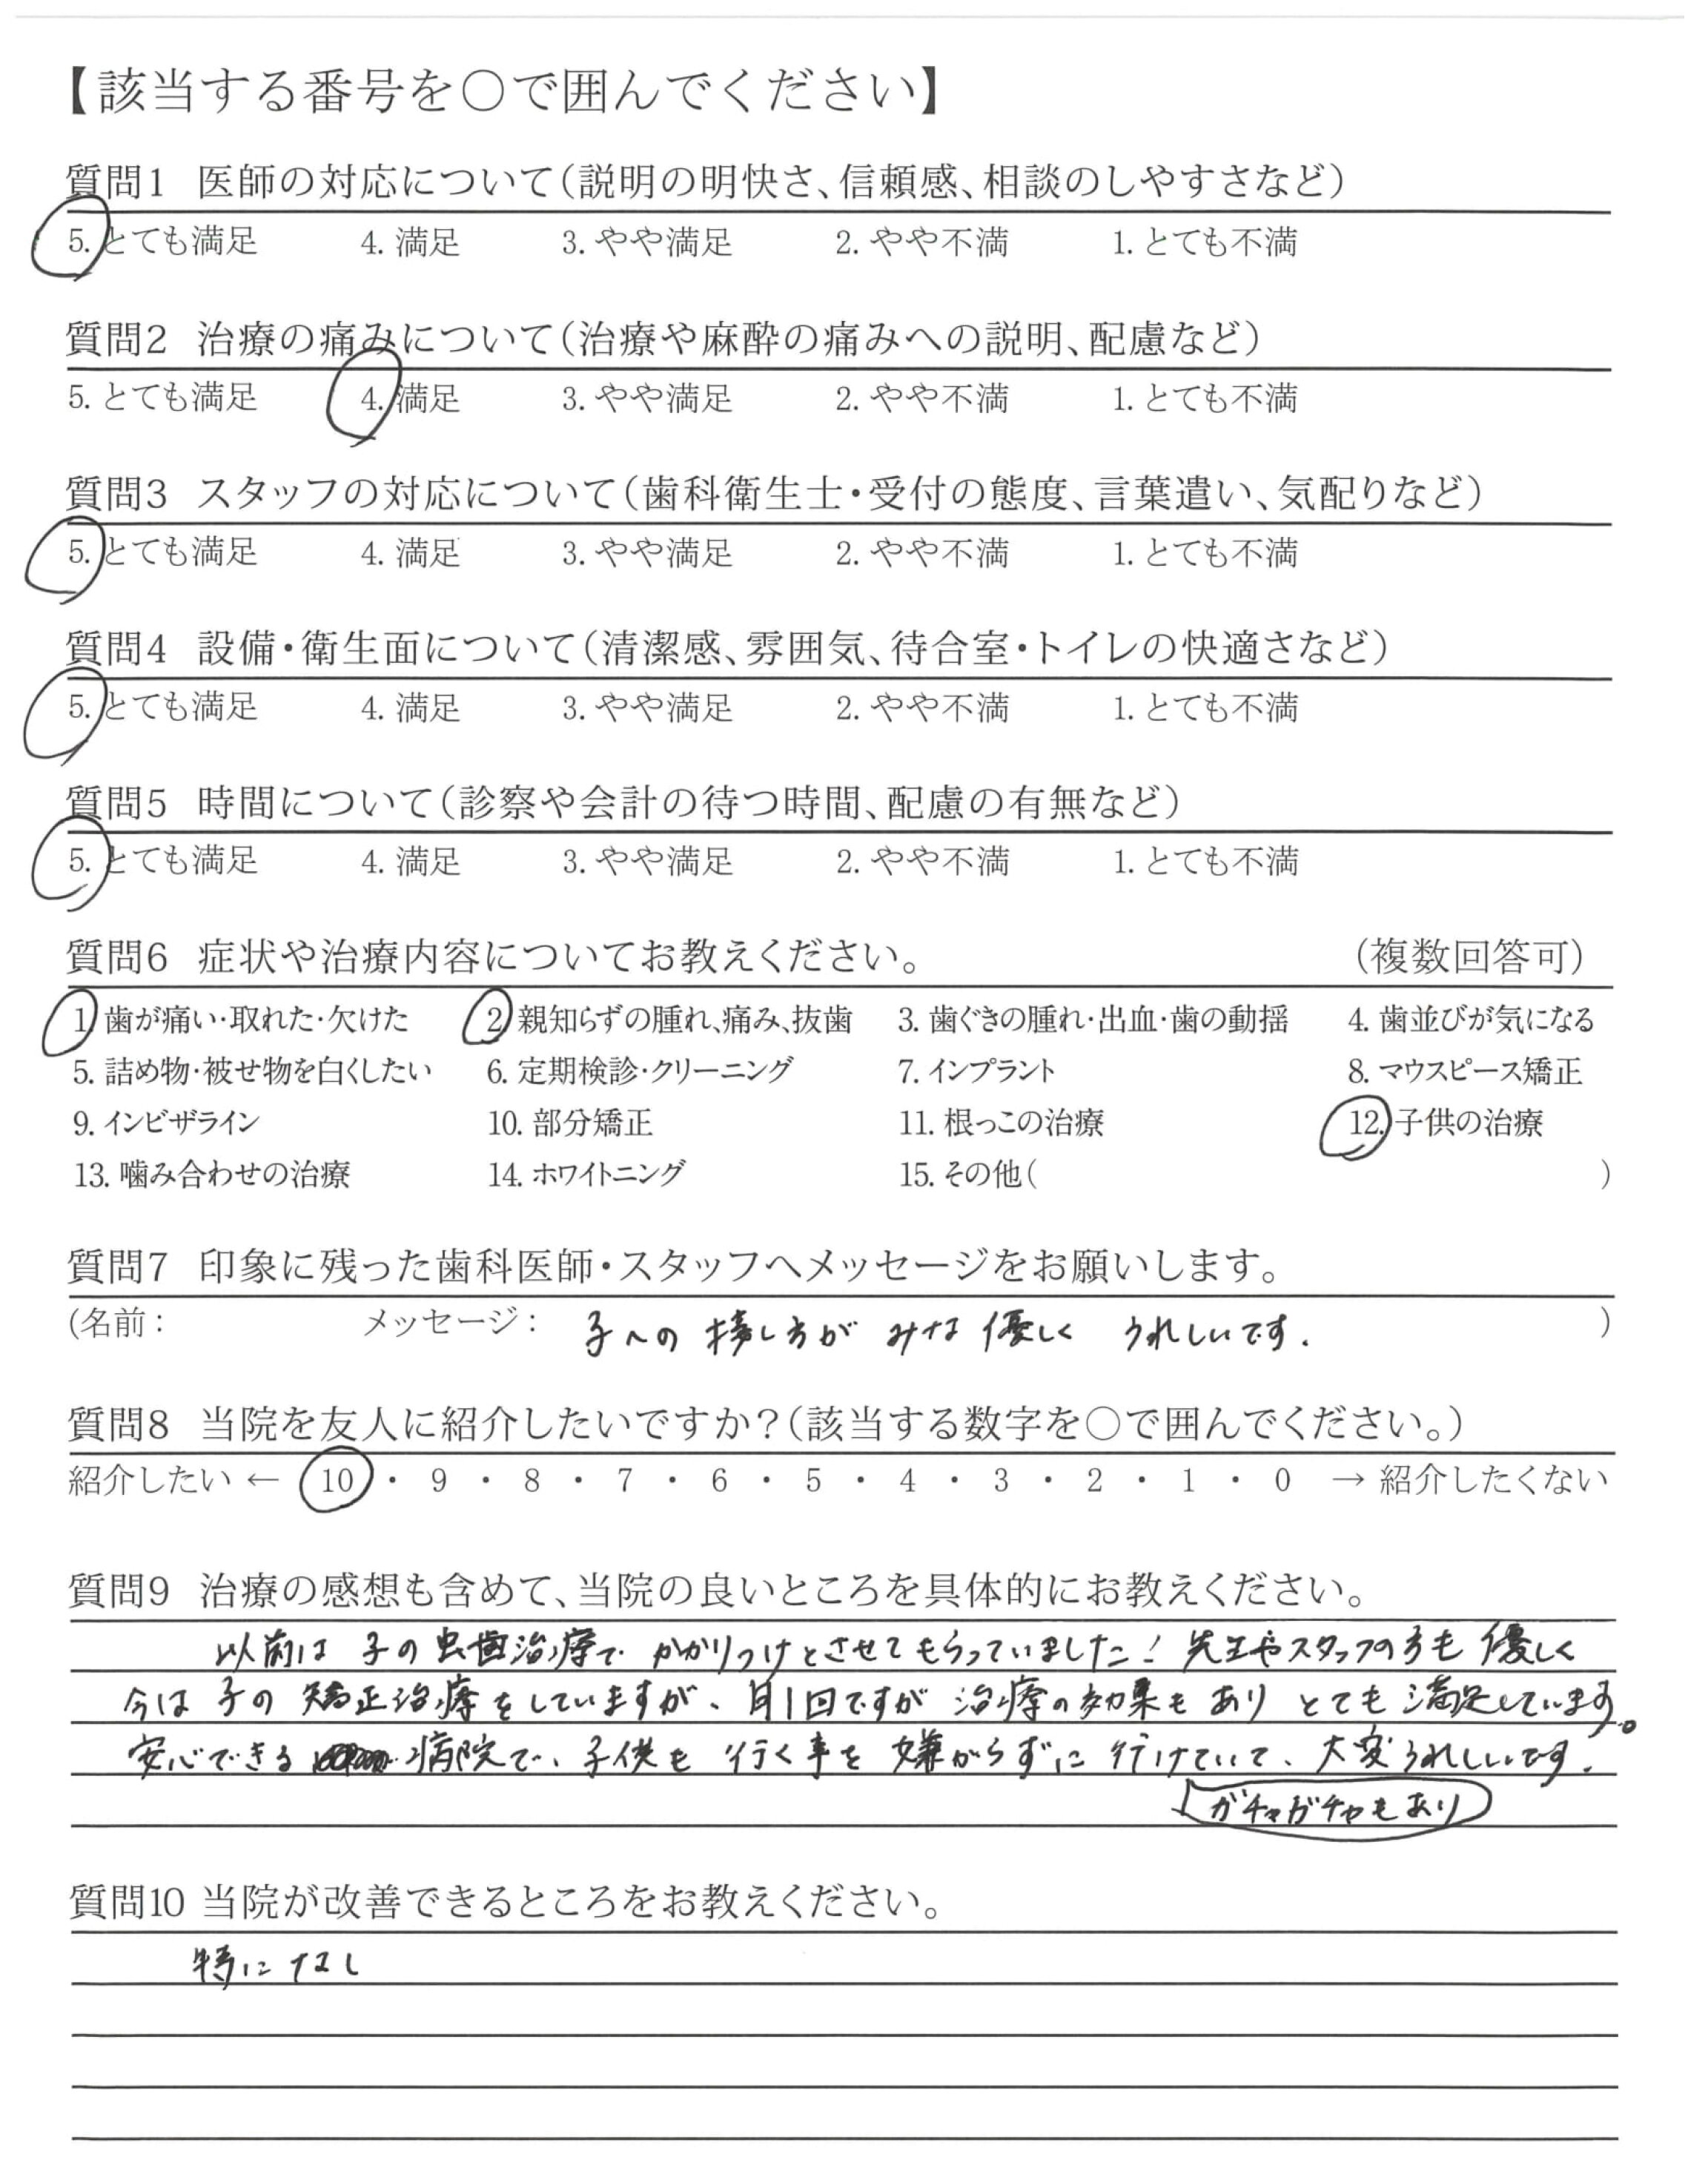 【該当する番号を〇で囲んでください】
質問1 医師の対応について(説明の明快さ、信頼感、相談のしやすさなど)
5. とても満足 4. 満足 3. やや満足 2. やや不満 1. とても不満
質問2 治療の痛みについて(治療や麻酔の痛みへの説明、配慮など)
5. とても満足 4. 満足 3. やや満足 2. やや不満 1. とても不満
質問3 スタッフの対応について(歯科衛生士・受付の態度、言葉遣い、気配りなど)
5. とても満足 4. 満足 3. やや満足 2. やや不満 1. とても不満
質問4 設備・衛生面について(清潔感、雰囲気、待合室・トイレの快適さなど)
5. とても満足 4. 満足 3. やや満足 2. やや不満 1. とても不満
質問5 時間について(診察や会計の待つ時間、配慮の有無など)
5. とても満足 4. 満足 3. やや満足 2. やや不満 1. とても不満
質問6 症状や治療内容についてお教えください。 (複数回答可)
1. 歯が痛い・取れた・欠けた 2. 親知らずの腫れ、痛み、抜歯 3. 歯ぐきの腫れ・出血・歯の動揺 4. 歯並びが気になる
5. 詰め物・被せ物を白くしたい 6. 定期検診・クリーニング 7. インプラント 8. マウスピース矯正
9. インビザライン 10. 部分矯正 11. 根っこの治療 12. 子供の治療
13. 噛み合わせの治療 14. ホワイトニング 15. その他( )
質問7 印象に残った歯科医師・スタッフへメッセージをお願いします。
(名前: メッセージ: 子への接し方がみな優しくうれしいです. )
質問8 当院を友人に紹介したいですか?(該当する数字を〇で囲んでください。)
紹介したい ← 10 ・ 9 ・ 8 ・ 7 ・ 6 ・ 5 ・ 4 ・ 3 ・ 2 ・ 1 ・ 0 → 紹介したくない
質問9 治療の感想も含めて、当院の良いところを具体的にお教えください。
以前は子の虫歯治療でかかりつけとさせてもらっていました! 先生やスタッフの方も優しく
今は子の矯正治療をしていますが、月1回ですが治療の効果もありとても満足しています。
安心できる病院で、子供も行く事を嫌がらずに行けていて、大変うれしいです.
ガチャガチャもあり
質問10 当院が改善できるところをお教えください。
特になし